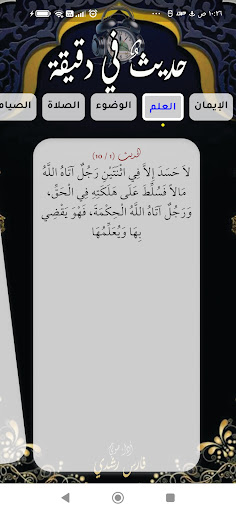 ١٠:٢٦ ص
حديثٌ في دقيقة
الإيمان
العلم
الوضوء
الصلاة
الصيام
الحديث (١ / ١٥)
لاَ حَسَدَ إِلاَّ فِي اثْنَتَيْنِ رَجُلٌ آتَاهُ اللَّهُ
مَالاً فَسُلِّطَ عَلَى هَلَكَتِهِ فِي الْحَقِّ،
وَرَجُلٌ آتَاهُ اللَّهُ الْحِكْمَةَ، فَهْوَ يَقْضِي
بِهَا وَيُعَلِّمُهَا
فارس رشدي